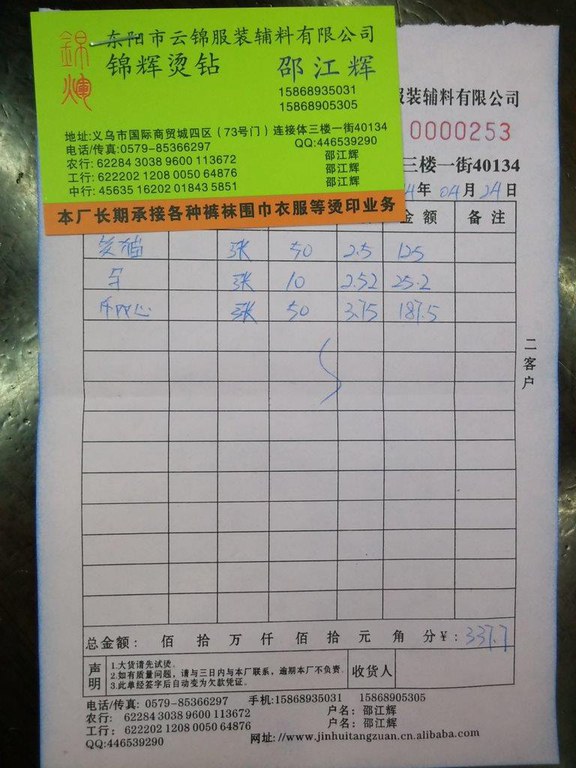 錦輝
东阳市云锦服装辅料有限公司
锦辉烫钻 邵江辉
15868935031
15868905305
地址:义乌市国际商贸城四区(73号门)连接体三楼一街40134
电话/传真:0579-85366297 QQ:446539290
农行: 62284 3038 9600 113672 邵江辉
工行: 622202 1208 0050 64876 邵江辉
中行: 45635 16202 01843 5851 邵江辉
本厂长期承接各种裤袜围巾衣服等烫印业务
服装辅料有限公司
0000253
三楼一街40134
4年04月24日
金额 备注
张 50 2.5 125
张 10 2.52 25.2
张 50 3.75 187.5
二客户
总金额: 佰 拾 万 仟 佰 拾 元 角 分¥: 337.7
声明
1.大货请先试烫.
2.如有质量问题, 请与三日内与本厂联系, 逾期本厂不负责.
3.此单经签字后自动变为欠款凭证.
收货人
电话/传真: 0579-85366297 手机:15868935031 15868905305
农行: 62284 3038 9600 113672 户名: 邵江辉
工行: 622202 1208 0050 64876 户名: 邵江辉
QQ:446539290 网址://www.jinhuitangzuan.cn.alibaba.com